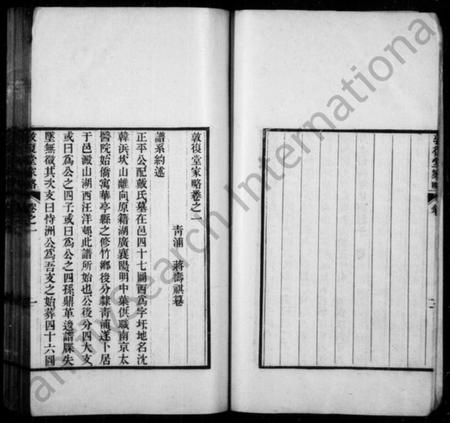 敦復堂家略卷之一
青浦 蔣
譜系約述
正平公配戴氏墓在邑四十七圖西為字圩地名沈
韓浜坎山離向原籍湖廣襄陽明中葉供職南京太
醫院始僑寓華亭縣之修竹鄉後分隸青浦遂卜居
于邑澱山湖西汪洋邨此譜所始也公後分四大支
或曰為公之四子或曰為公之四孫鼎革邊譜牒失
墜無徵其次支曰恃洲公為吾支之始葬四十六圖
敦復堂家略 卷之一 一
敦復堂家略 卷
Ancestry Search International